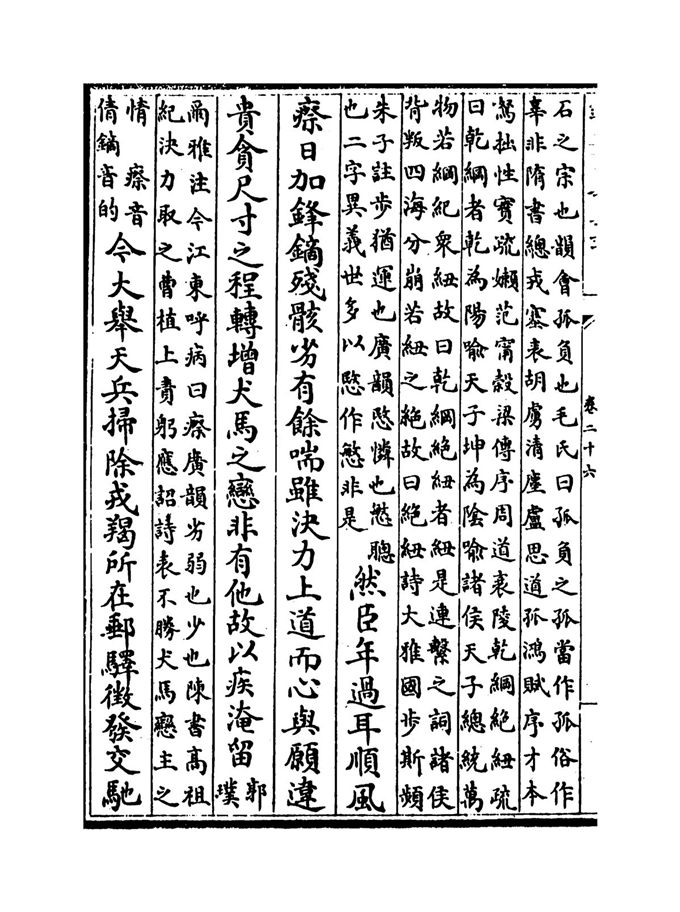 卷二十六
石之宗也韻會孤負也毛氏曰孤負之孤當作孤俗作
辜非隋書總戎塞表胡虜清塵盧思道孤鴻賦序才本
駑拙性實疏嬾范甯穀梁傳序周道衰陵乾綱絕紐疏
曰乾綱者乾為陽喻天子坤為陰喻諸侯天子總統萬
物若綱紀衆紐故曰乾綱絕紐者紐是連繫之詞諸侯
背叛四海分崩若紐之絕故曰絕紐詩大雅國步斯頻
朱子註步猶運也廣韻愍憐也慜聰
也二字異義世多以愍作慜非是
然臣年過耳順風
瘵日加鋒鏑殘骸劣有餘喘雖決力上道而心與願違
貴貪尺寸之程轉增犬馬之戀非有他故以疾淹留
郭
璞
爾雅注今江東呼病曰瘵廣韻劣弱也少也陳書高祖
紀決力取之曹植上責躬應詔詩表不勝犬馬戀主之
情 瘵音
倩鏑音的
今大舉天兵掃除戎羯所在郵驛徵發交馳